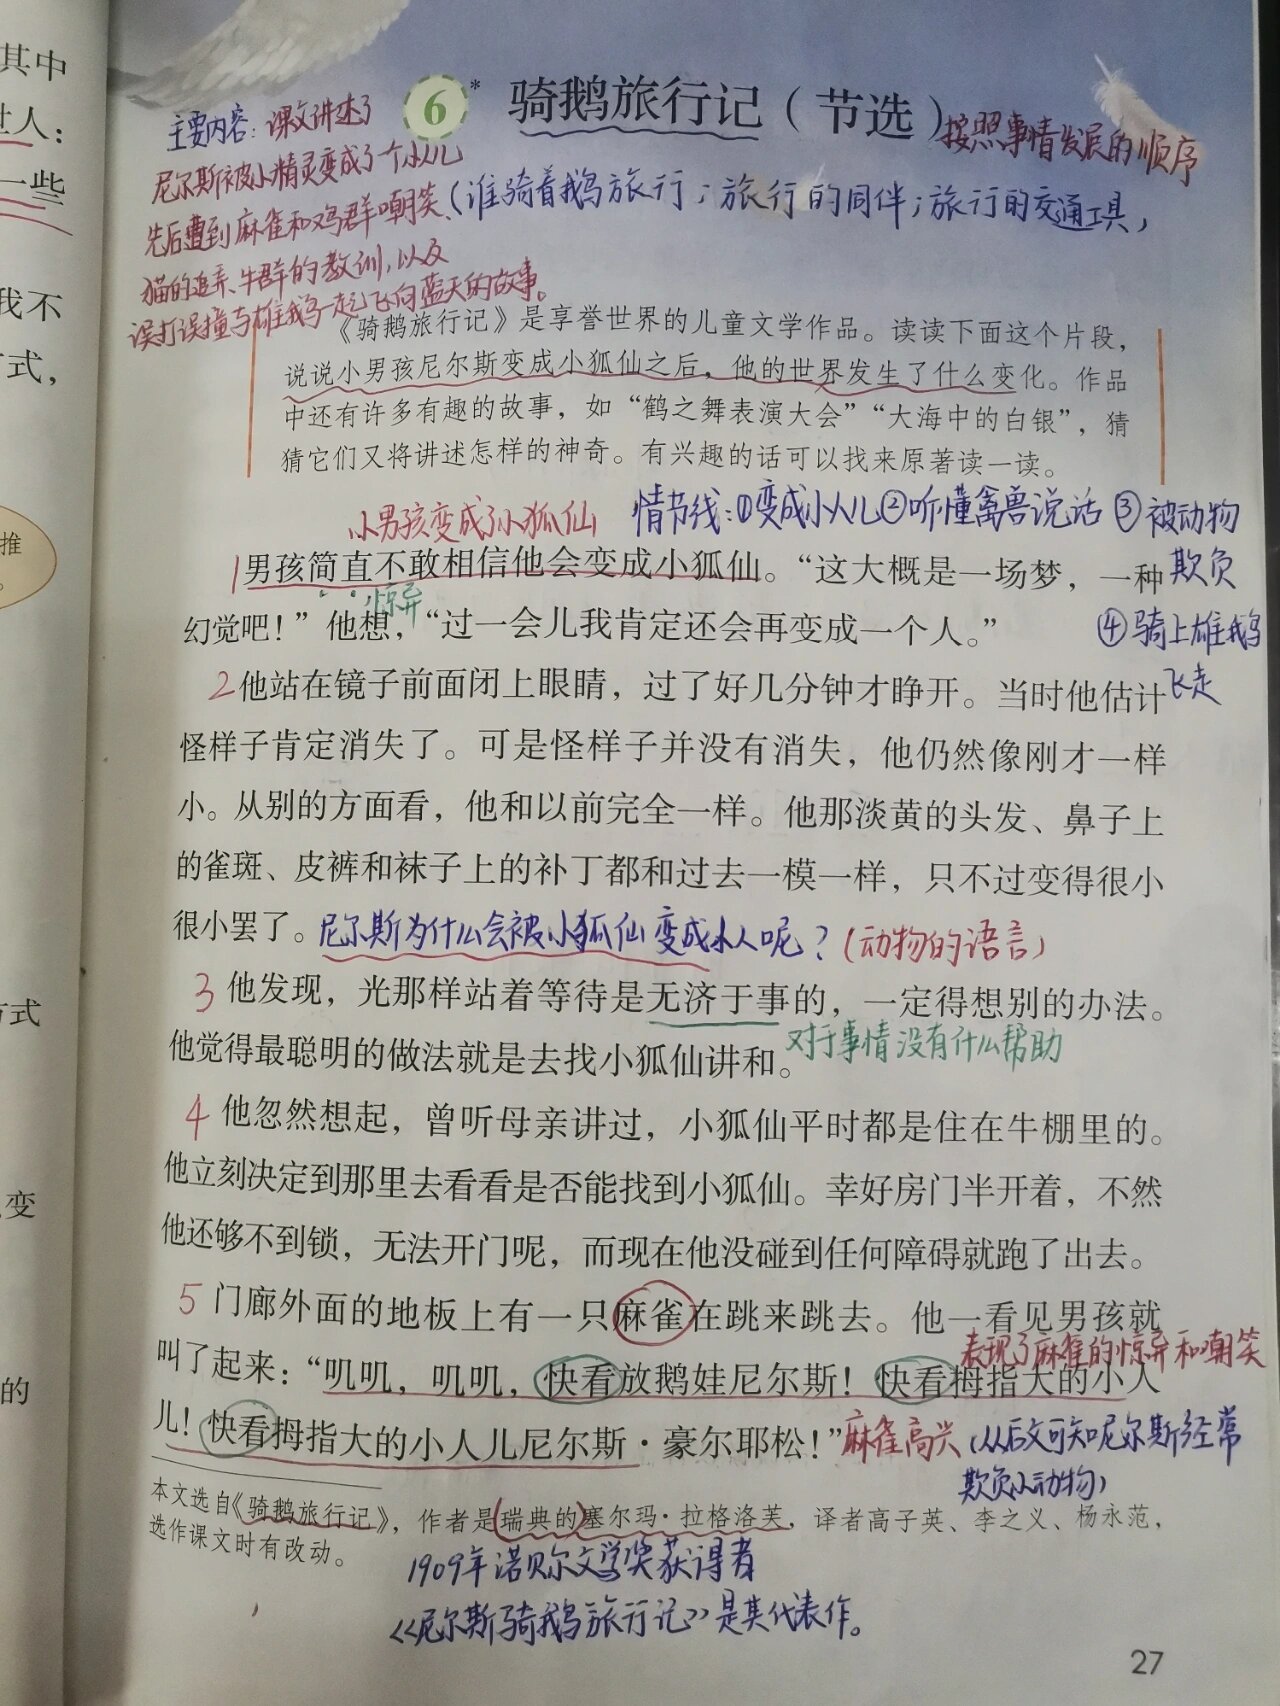 其中
世人：
一些
我不
方式，
推
。
方式
变
的
6* 骑鹅旅行记（节选）
按照事情发展的顺序
主要内容：课文讲述了
尼尔斯被小精灵变成了个小人儿
先后遭到麻雀和鸡群嘲笑、
猫的追弄、牛群的教训，以及
误打误撞与雄鹅一起飞向蓝天的故事。
（谁骑着鹅旅行；旅行的同伴；旅行的交通工具）
《骑鹅旅行记》是享誉世界的儿童文学作品。读读下面这个片段，
说说小男孩尼尔斯变成小狐仙之后，他的世界发生了什么变化。作品
中还有许多有趣的故事，如“鹤之舞表演大会”“大海中的白银”，猜
猜它们又将讲述怎样的神奇。有兴趣的话可以找来原著读一读。
小男孩变成了小狐仙
情节线：①变成小人儿②听懂禽兽说话③被动物
欺负
④骑上雄鹅
飞走
1男孩简直不敢相信他会变成小狐仙。“这大概是一场梦，一种
惊异
幻觉吧！”他想，“过一会儿我肯定还会再变成一个人。”
2他站在镜子前面闭上眼睛，过了好几分钟才睁开。当时他估计
怪样子肯定消失了。可是怪样子并没有消失，他仍然像刚才一样
小。从别的方面看，他和以前完全一样。他那淡黄的头发、鼻子上
的雀斑、皮裤和袜子上的补丁都和过去一模一样，只不过变得很小
很小罢了。
尼尔斯为什么会被小狐仙变成小人呢？（动物的语言）
3他发现，光那样站着等待是无济于事的，一定得想别的办法。
对于事情没有什么帮助
他觉得最聪明的做法就是去找小狐仙讲和。
4他忽然想起，曾听母亲讲过，小狐仙平时都是住在牛棚里的。
他立刻决定到那里去看看是否能找到小狐仙。幸好房门半开着，不然
他还够不到锁，无法开门呢，而现在他没碰到任何障碍就跑了出去。
5门廊外面的地板上有一只麻雀在跳来跳去。他一看见男孩就
表现了麻雀的惊异和嘲笑
叫了起来：“叽叽，叽叽，快看放鹅娃尼尔斯！快看拇指大的小人
儿！快看拇指大的小人儿尼尔斯·豪尔耶松！”
麻雀高兴（从后文可知呢尼尔斯经常
欺负小动物）
本文选自《骑鹅旅行记》，作者是（瑞典的）塞尔玛·拉格洛芙，译者高子英、李之义、杨永范，
选作课文时有改动。
1909年诺贝尔文学奖获得者
《尼尔斯骑鹅旅行记》是其代表作。
27